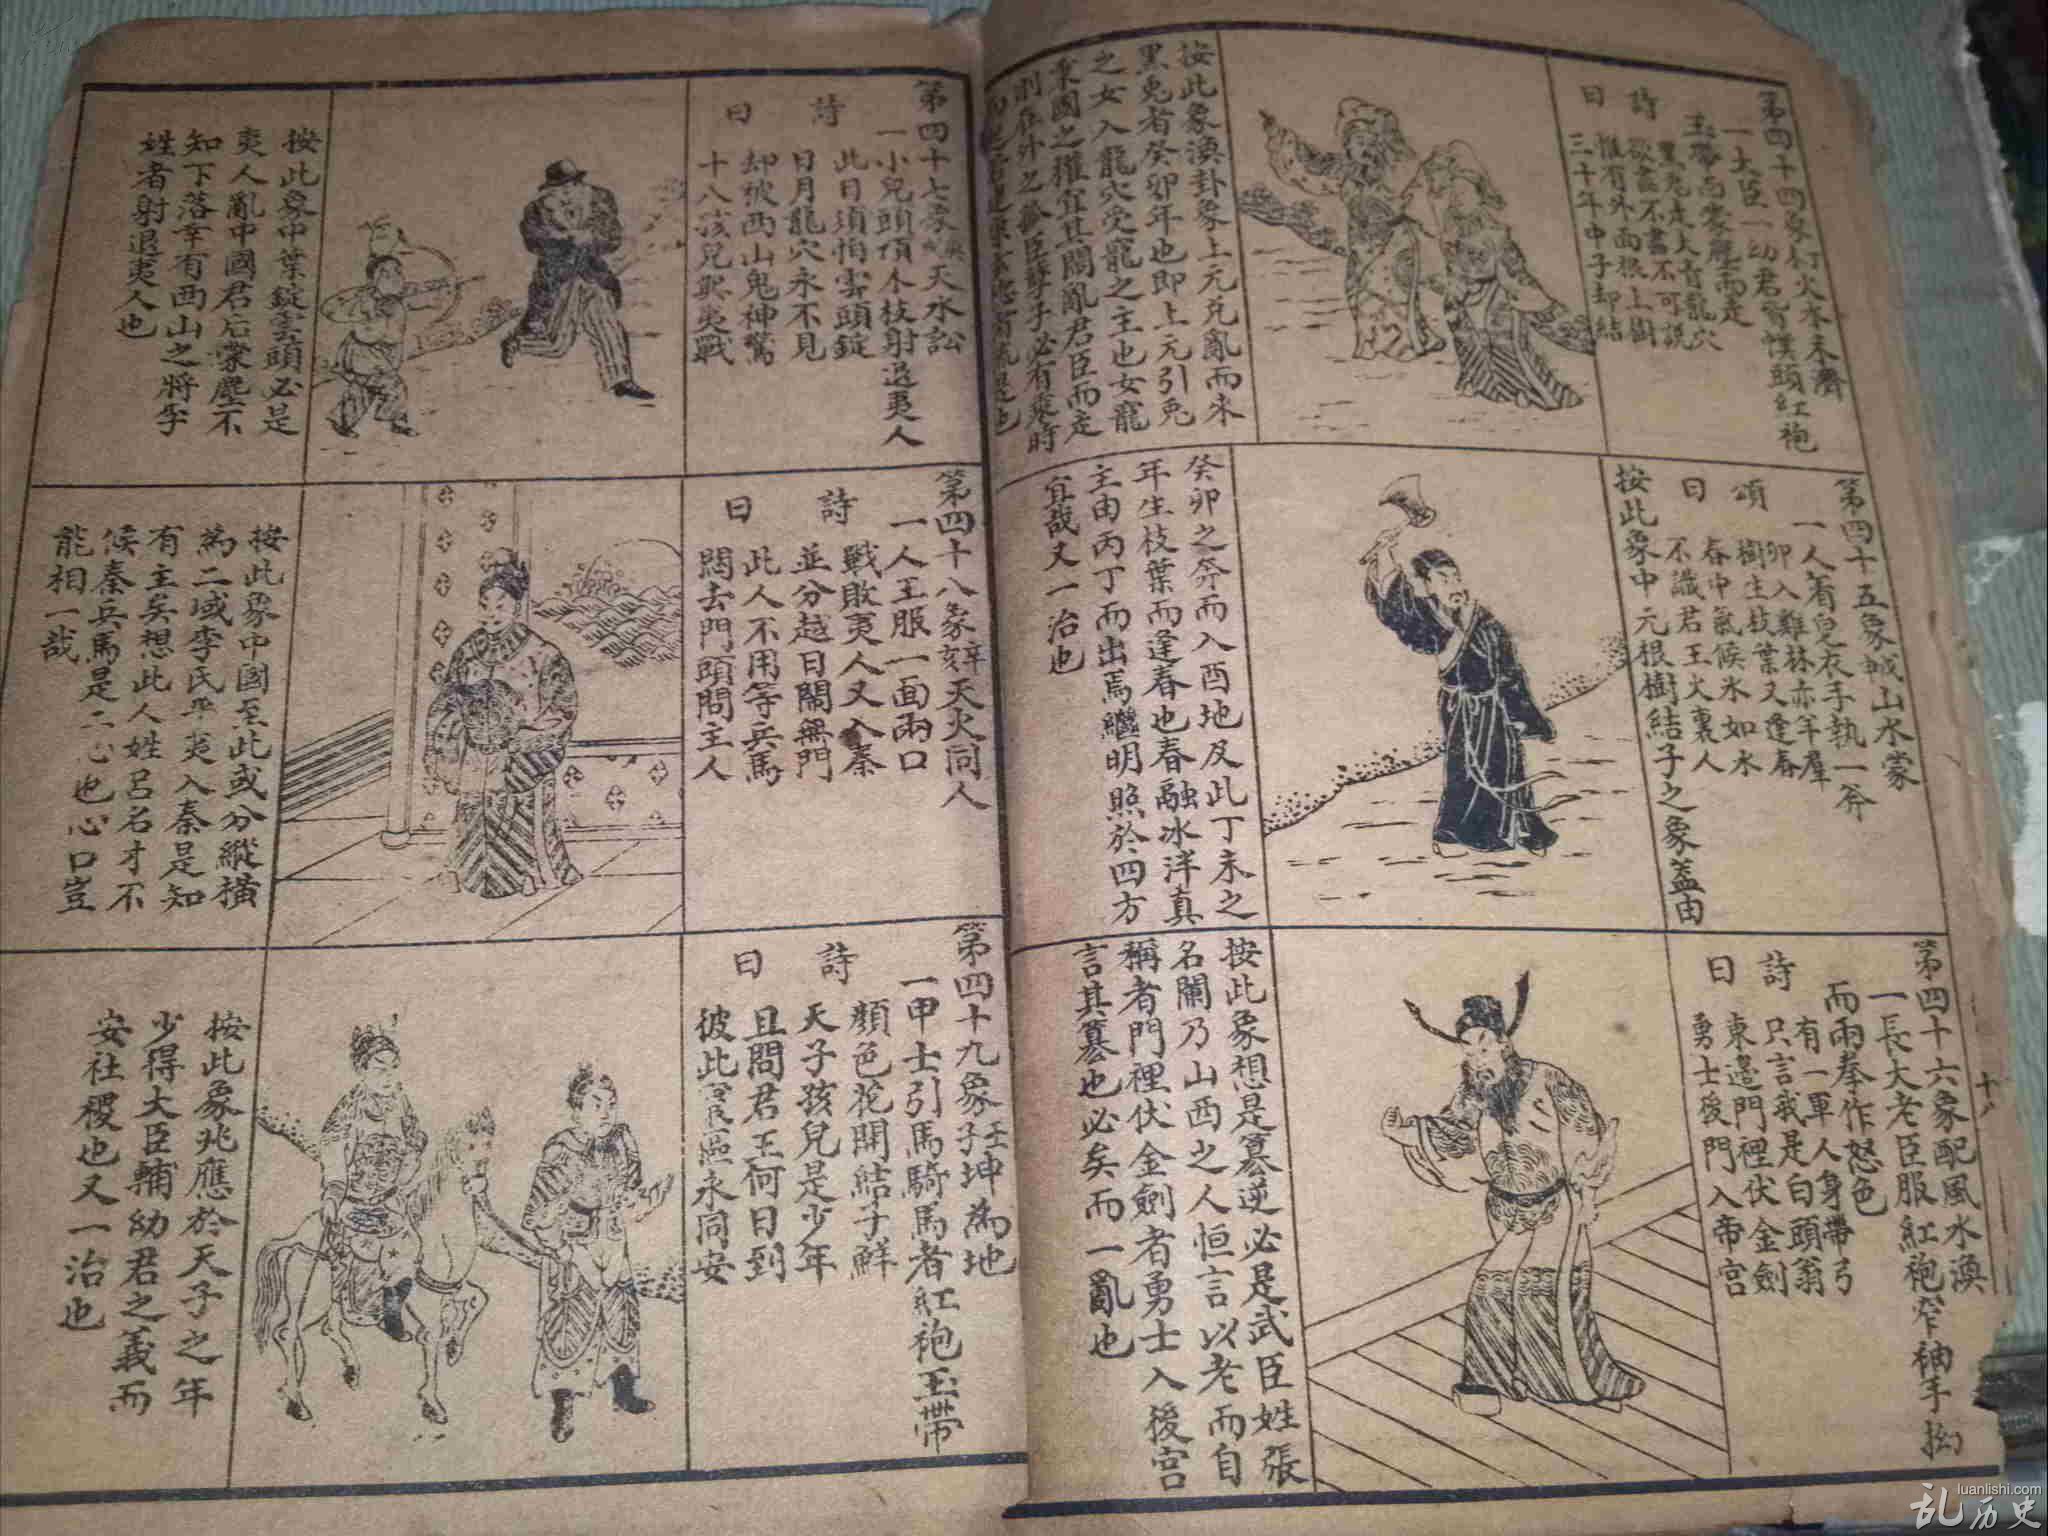 第四十四象 火水未濟
一大臣一幼君皆幞頭紅袍
玉帶而蒙塵而走
詩曰
黑兔走入青龍穴
欲盡不盡不可説
惟有外面根上樹
三十年中子却結
按此象渙卦象上元兌亂而未
黑兔者癸卯年也即上元引兔
之女入龍穴受寵之主也女寵
秉國之權宜其闢亂君臣而走
第四十五象 山水蒙
一人着皀衣手執一斧
頌曰
卯入雞林赤年羣
樹生枝葉又逢春
春中氣候氷如水
不識君王火裏人
按此象中元根樹結子之象蓋由
癸卯之斧而入酉地及此丁未之
年生枝葉而逢春也春融冰泮真
主由丙丁而出焉繼明照於四方
宜哉又一治也
第四十六象 風水渙
一長大老臣服紅袍窄袖手拗
而兩拳作怒色
詩曰
有一軍人身帶弓
只言我是白頭翁
東邊門裡伏金劍
勇士後門入帝宮
按此象想是篡逆必是武臣姓張
名闌乃山西之人恒言以老而自
稱者門裡伏金劍者勇士入後宮
言其篡也必矣而一亂也
十八
第四十七象 天水訟
一小兒頭頂木枝射退夷人
詩曰
此日須怕雲頭錠
日月龍穴永不見
却被西山鬼神驚
十八孩兒興夷戰
按此象中葉錠雲頭必是
夷人亂中國君后蒙塵不
知下落幸有西山之將李
姓者射退夷人也
第四十八象辛亥天火同人
一人王服一面兩口
詩曰
戰敗夷人又入秦
並分越日鬧無門
此人不用等兵馬
闊去門頭問主人
按此象中國至此或分縱橫
為二域李氏平夷入秦是知
有主矣想此人姓呂名才不
候秦兵馬是二心也心口豈
能相一哉
第四十九象壬子坤為地
一甲士引馬騎馬者紅袍玉帶
詩曰
顏色花開結子鮮
天子孩兒是少年
且問君王何日到
彼此寰區永同安
按此象兆應於天子之年
少得大臣輔幼君之義而
安社稷也又一治也
luanlishi.com
乱历史